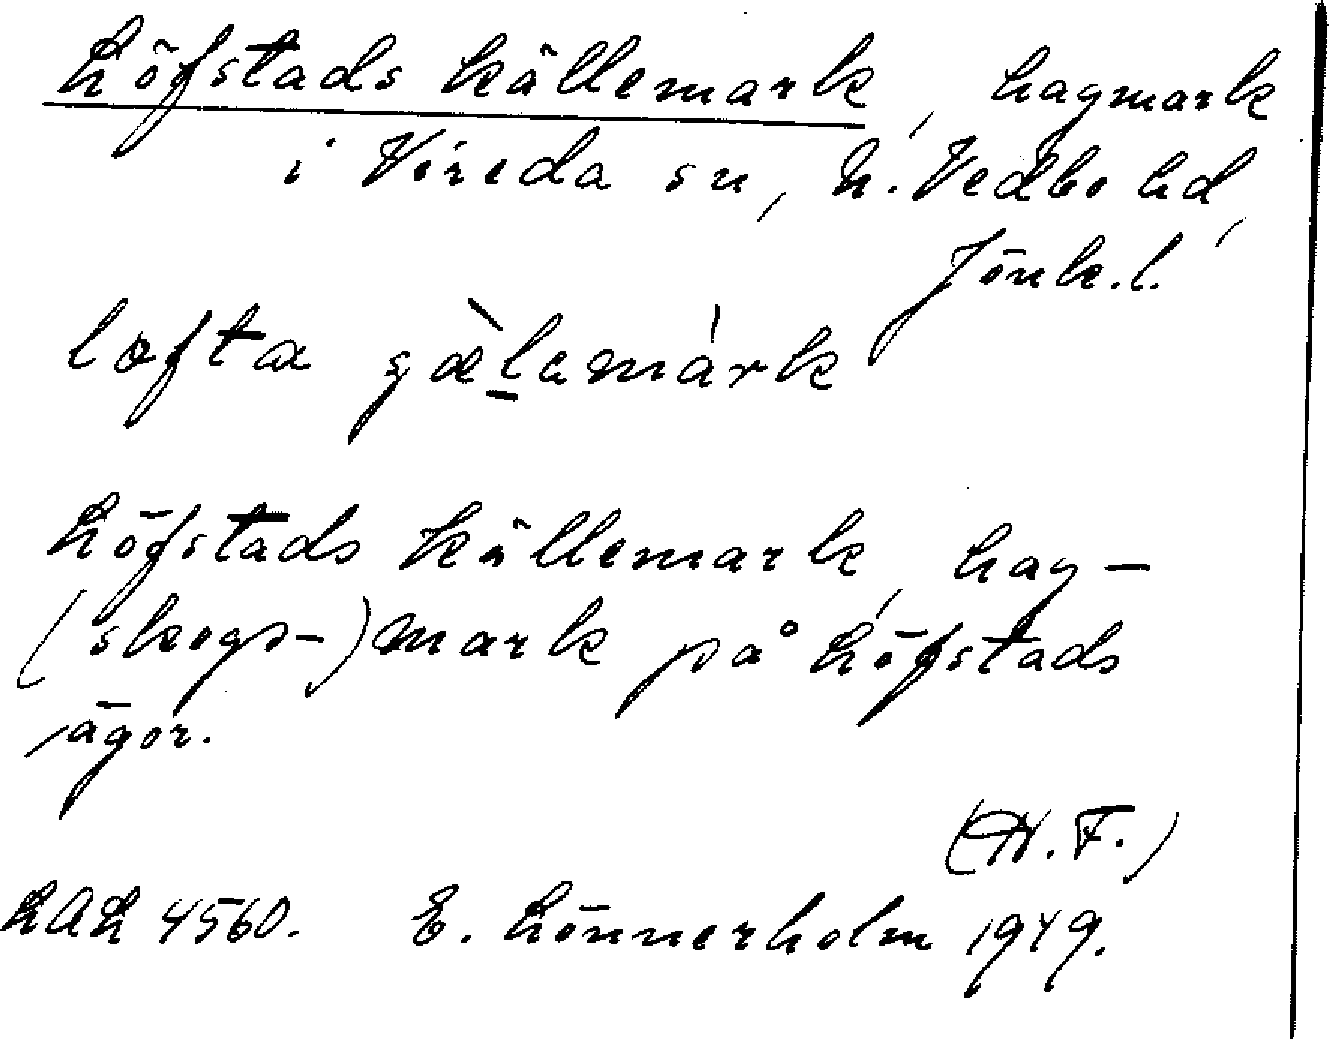 Löfstads källemark, hagmark
i Vireda sn, N. Vedbo hd,
Jönk. l.
löfstads källemark, hag-
(skogs-) mark på Löfstads
ägor.
(H. F.)
LAL 4560. E. Lönnerholm 1949.